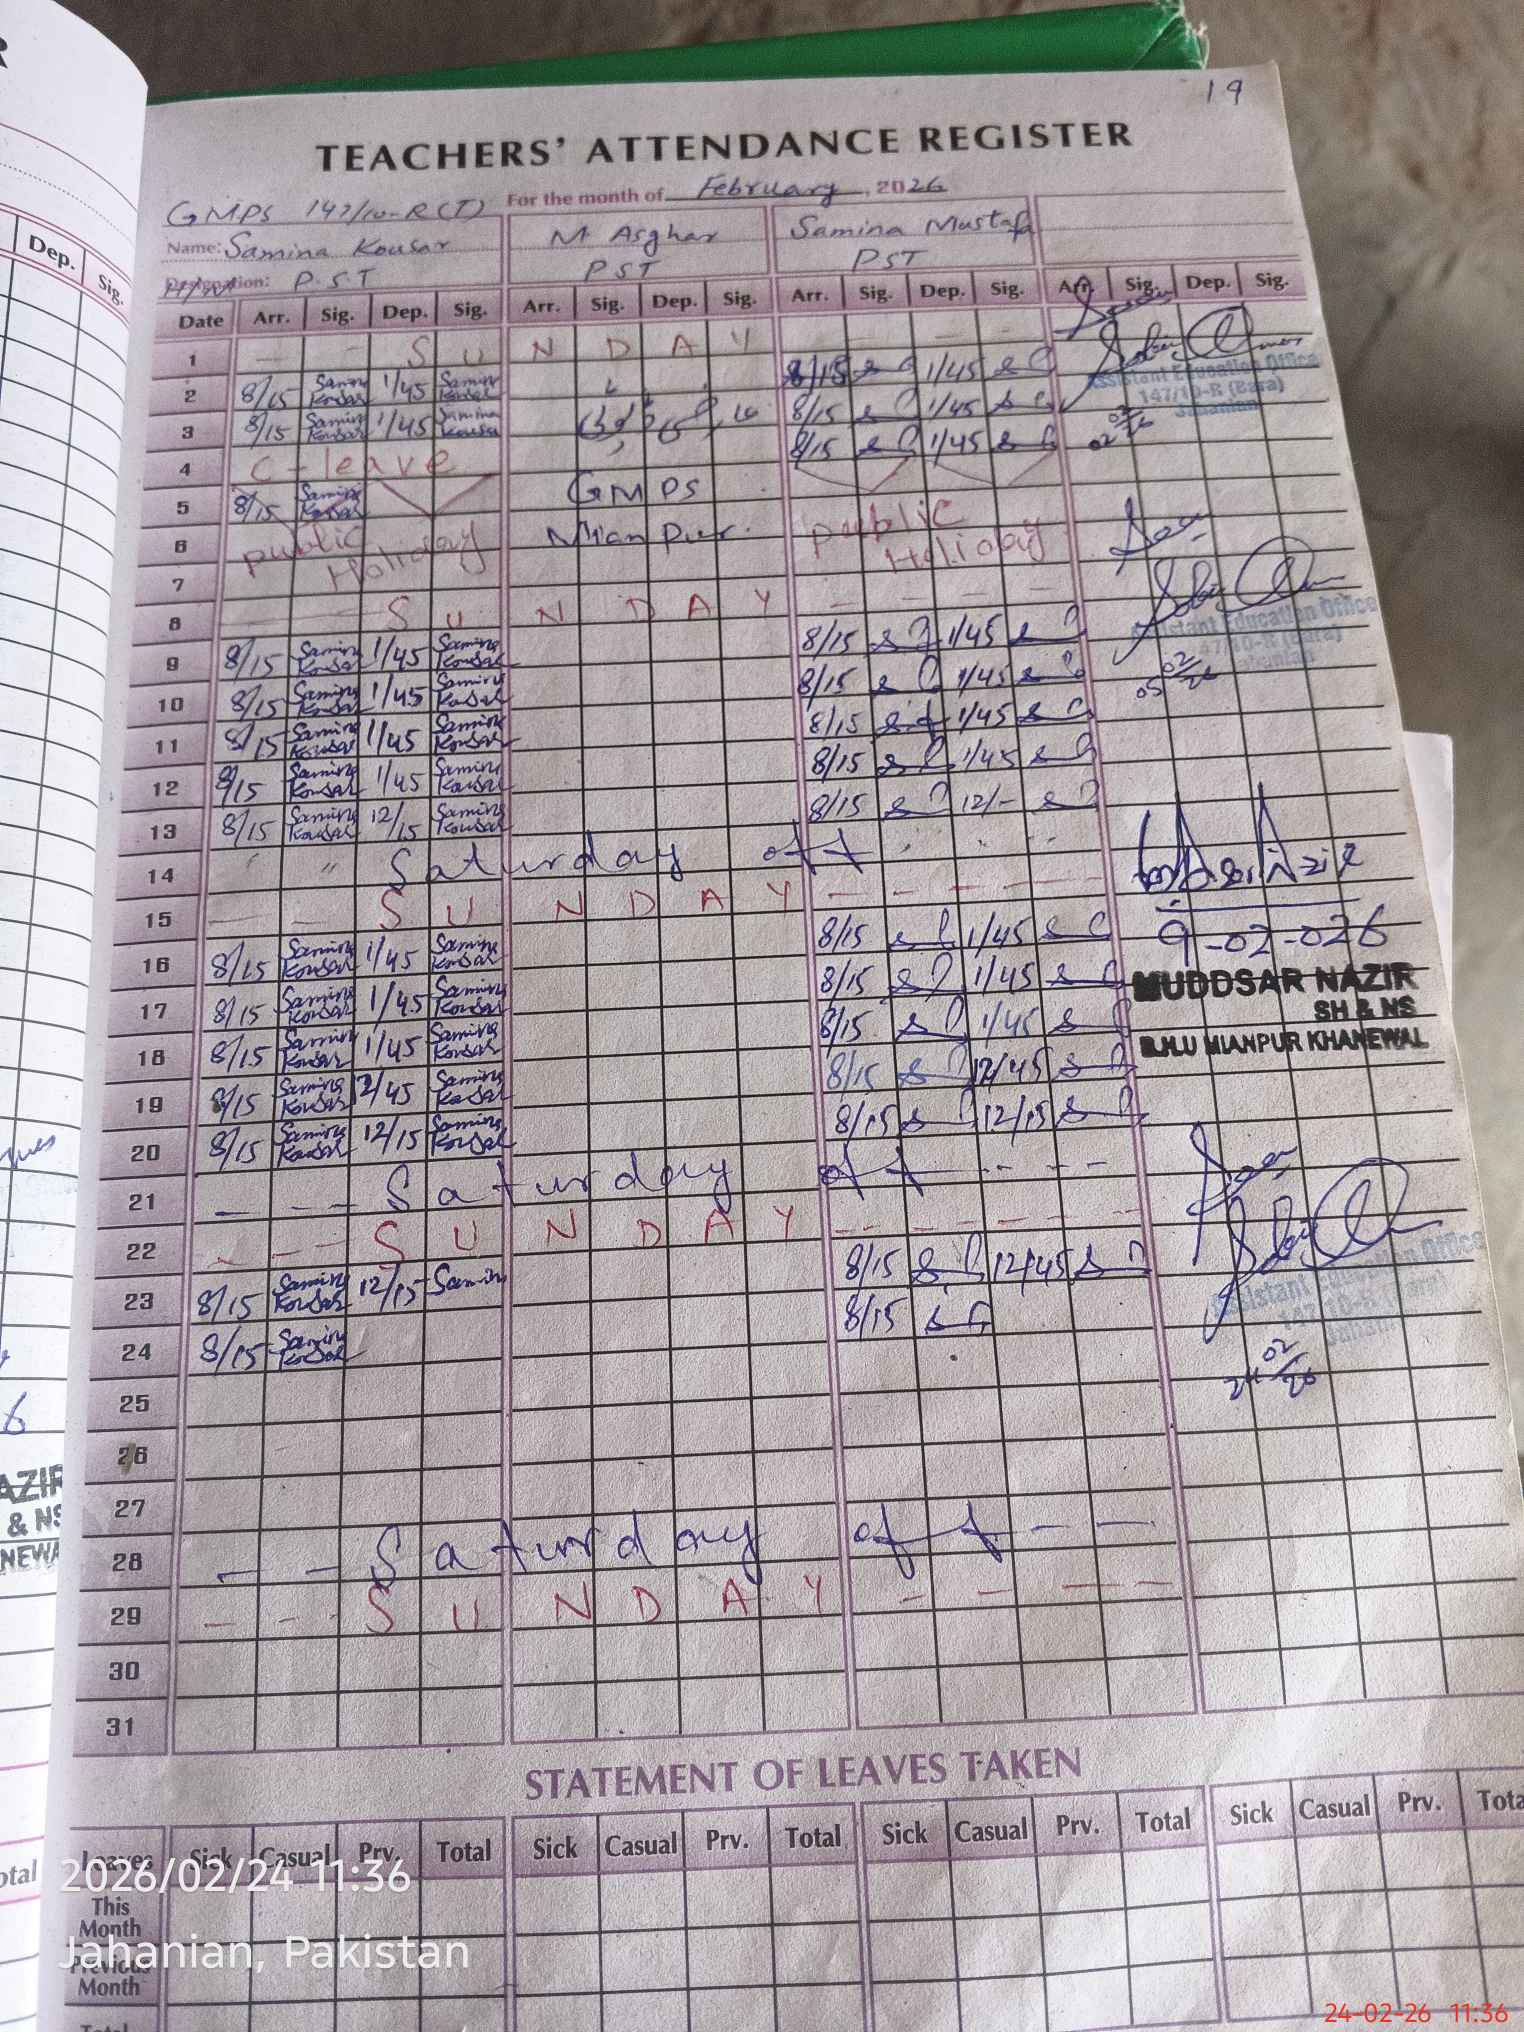 19
TEACHERS' ATTENDANCE REGISTER
For the month of February, 2026
GMPS 147/10-R (T)
Name: Samina Kousar M Asghar Samina Mustafa
Designation: P.S.T PST PST
Date Arr. Sig. Dep. Sig. Arr. Sig. Dep. Sig. Arr. Sig. Dep. Sig. Arr. Sig. Dep. Sig.
1 S U N D A Y
2 8/15 Samina Kousar 1/45 Samina Kousar 8/15 1/45
3 8/15 Samina Kousar 1/45 Samina Kousar 8/15 1/45
4 C-leave 8/15 1/45
5 8/15 Samina Kousar GMPS
6 public Holiday Mian Pur. public Holiday
7
8 S U N D A Y
9 8/15 Samina Kousar 1/45 Samina Kousar 8/15 1/45
10 8/15 Samina Kousar 1/45 Samina Kousar 8/15 1/45
11 8/15 Samina Kousar 1/45 Samina Kousar 8/15 1/45
12 8/15 Samina Kousar 1/45 Samina Kousar 8/15 1/45
13 8/15 Samina Kousar 12/15 Samina Kousar 8/15 12/-
14 " Saturday off
15 S U N D A Y
16 8/15 Samina Kousar 1/45 Samina Kousar 8/15 1/45
17 8/15 Samina Kousar 1/45 Samina Kousar 8/15 1/45
18 8/15 Samina Kousar 1/45 Samina Kousar 8/15 1/45
19 8/15 Samina Kousar 12/45 Samina Kousar 8/15 12/45
20 8/15 Samina Kousar 12/15 Samina Kousar 8/15 12/15
21 Saturday off
22 S U N D A Y
23 8/15 Samina Kousar 12/15 Samina 8/15 12/45
24 8/15 Samina Kousar 8/15
25
26
27
28 Saturday off
29 S U N D A Y
30
31
Assistant Education Office
147/10-R (Bara)
Jahanian
02 02/26
Assistant Education Office
147/10-R (Bara)
Jahanian
05 02/26
9-02-026
MUDDSAR NAZIR
SH & NS
B.H.U MIANPUR KHANEWAL
Assistant Education Office
147/10-R (Bara)
Jahanian
24 02/26
STATEMENT OF LEAVES TAKEN
Leaves Sick Casual Prv. Total Sick Casual Prv. Total Sick Casual Prv. Total Sick Casual Prv. Total
This Month
Previous Month
Total
2026/02/24 11:36
Jahanian, Pakistan
24-02-26 11:36
Dep. Sig.